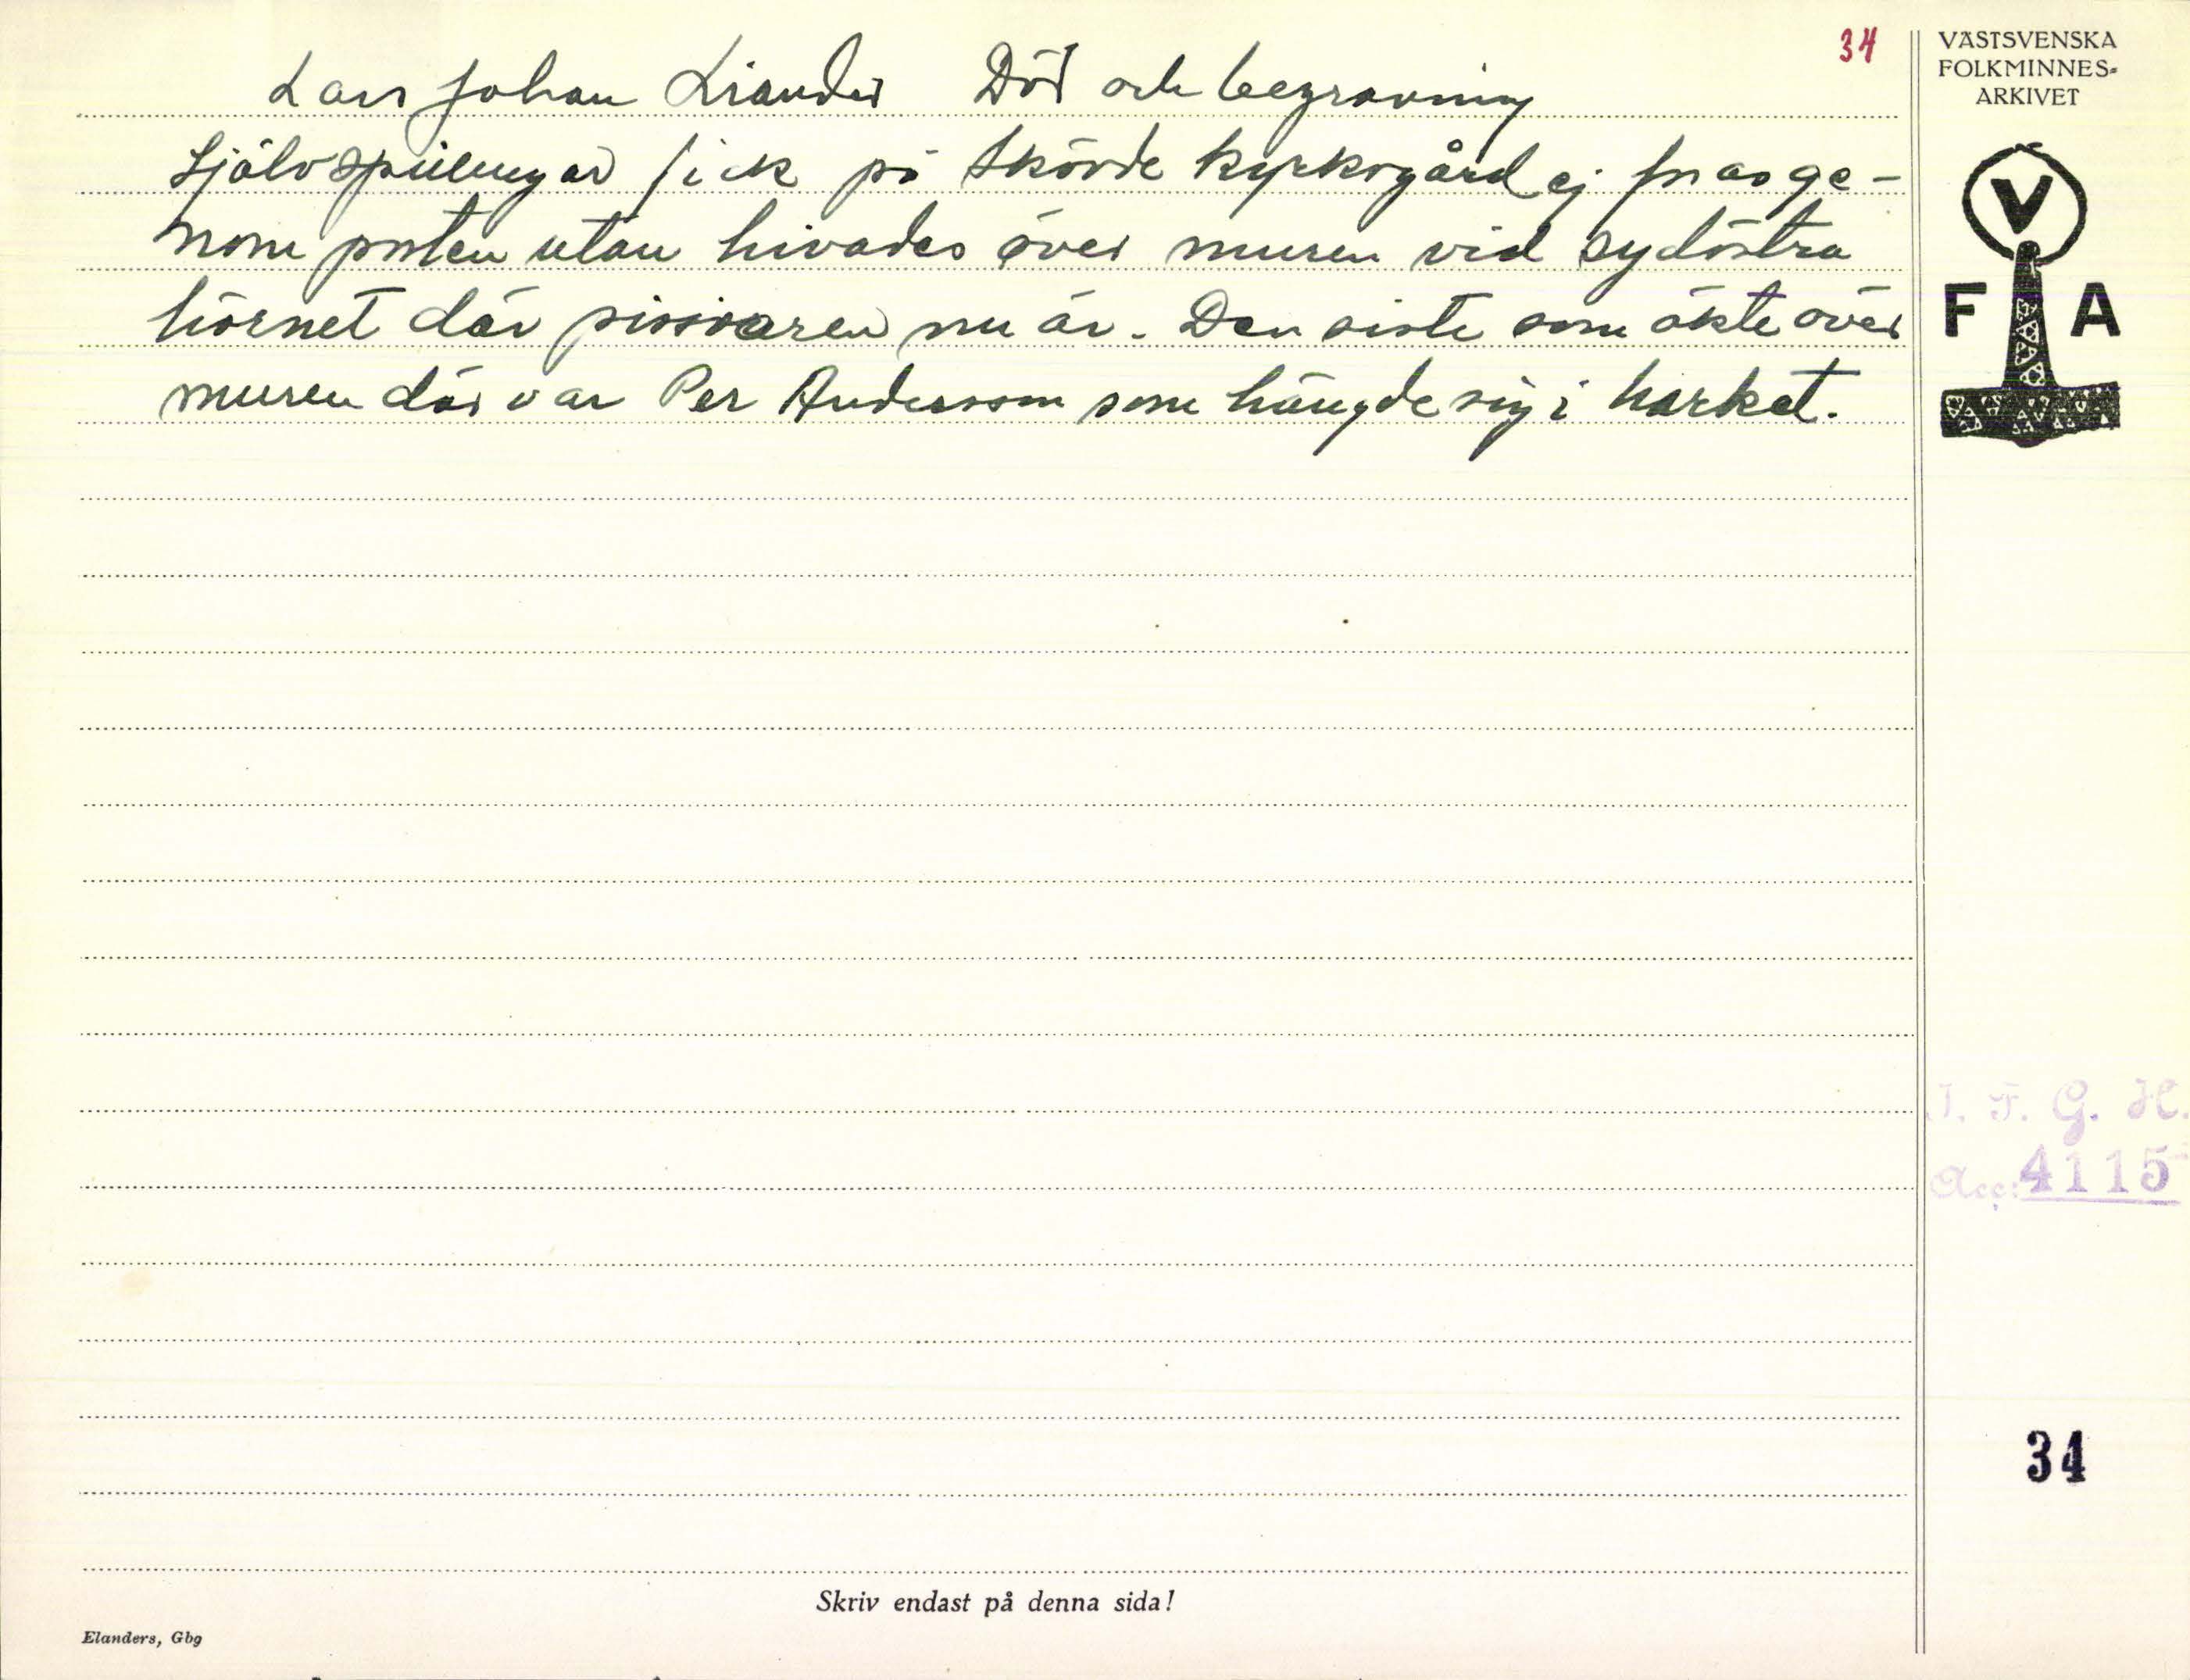 34
Lars Johan Liander Död och begravning
Självspillingar fick på Skövde kyrkogård ej föras ge-
nom porten utan hivades över muren vid sydöstra
hörnet där pissoaren nu är. Den siste som åkte över
muren där var Per Andersson som hängde sig i harket.
VÄSTSVENSKA
FOLKMINNES-
ARKIVET
V
F A
I. F. G. H.
Acc: 4115
34
Skriv endast på denna sida!
Elanders, Gbg